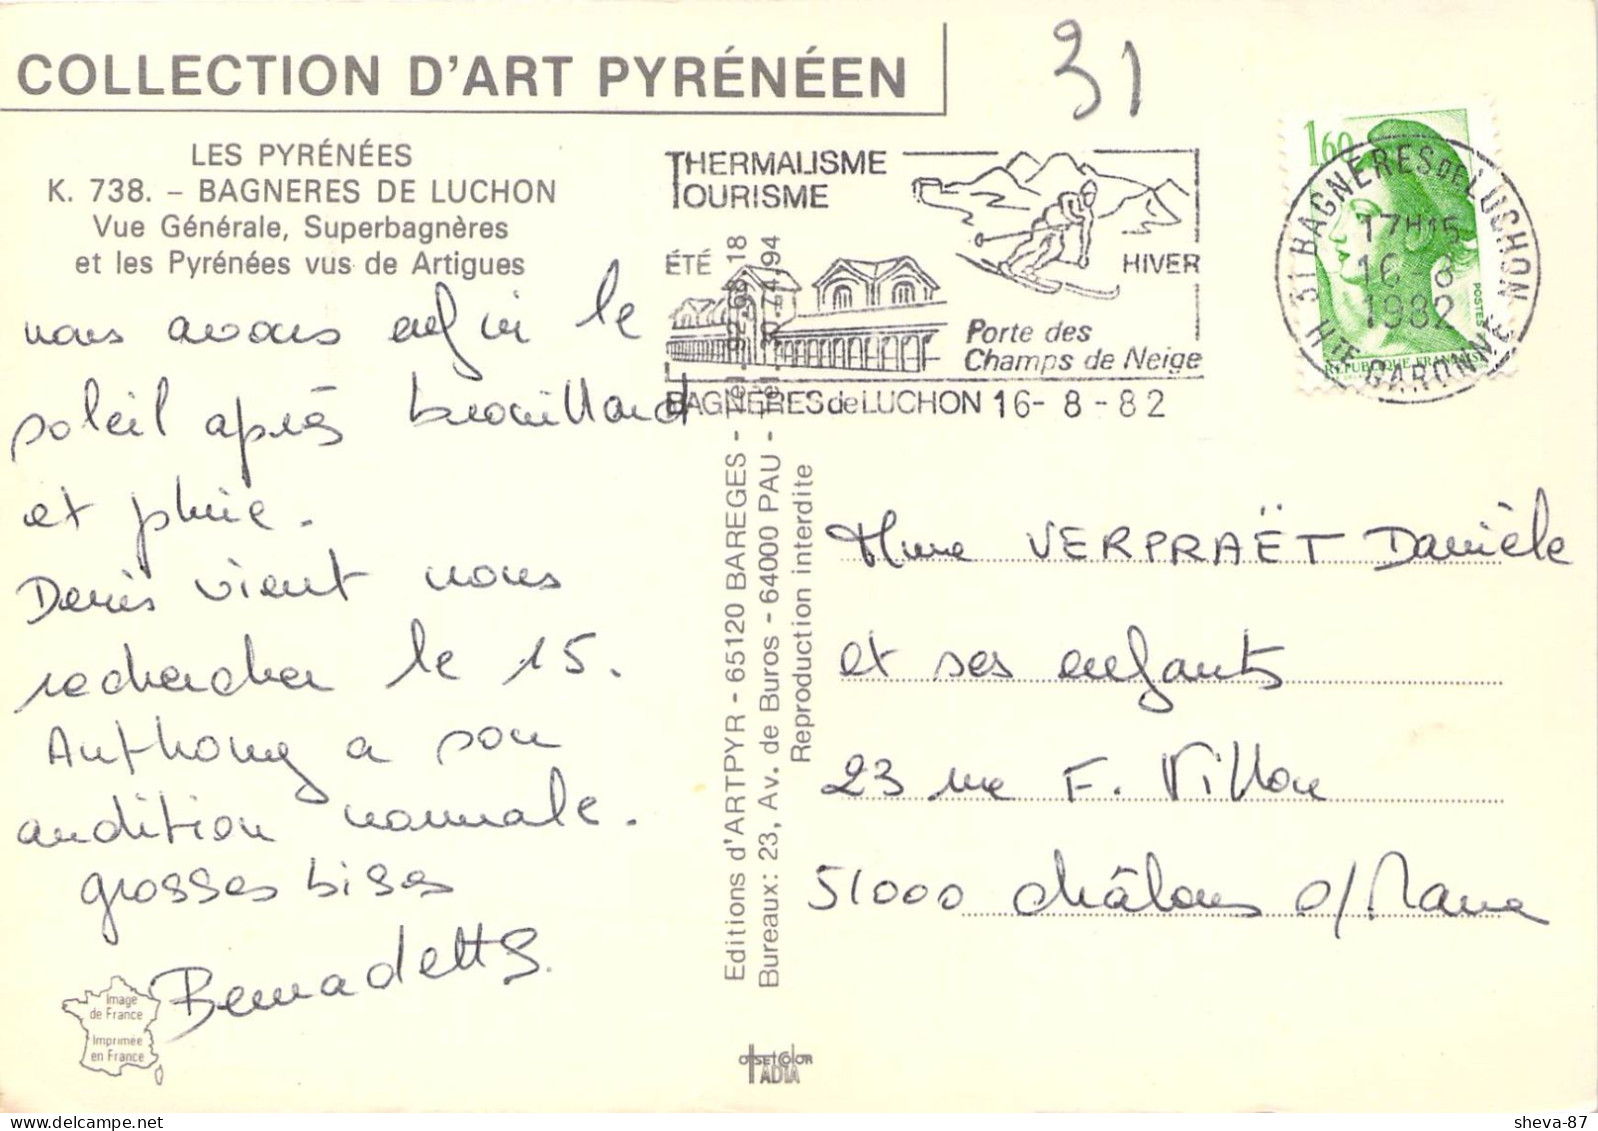 COLLECTION D'ART PYRÉNÉEN
31
LES PYRÉNÉES
K. 738. – BAGNERES DE LUCHON
Vue Générale, Superbagnères
et les Pyrénées vus de Artigues
nous avons enfin le
soleil après brouillard
et pluie.
Denis vient nous
rechercher le 15.
Anthony a son
audition normale.
grosses bises
Bernadette.
Image
de France
Imprimée
en France
THERMALISME
TOURISME
ÉTÉ
HIVER
Porte des
Champs de Neige
BAGNÈRES de LUCHON 16- 8 - 82
1,60
POSTES
REPUBLIQUE FRANÇAISE
31 BAGNERES DE LUCHON
17H15
16 -8
1982
HTE GARONNE
Editions d'ARTPYR - 65120 BAREGES - Tel. 92.68.18
Bureaux: 23, Av. de Buros - 64000 PAU - Tel. 30.74.94
Reproduction interdite
Mme VERPRAËT Danièle
et ses enfants
23 rue F. Villon
51000 Châlons s/Marne
OffsetColor
TADIA
sheva-87